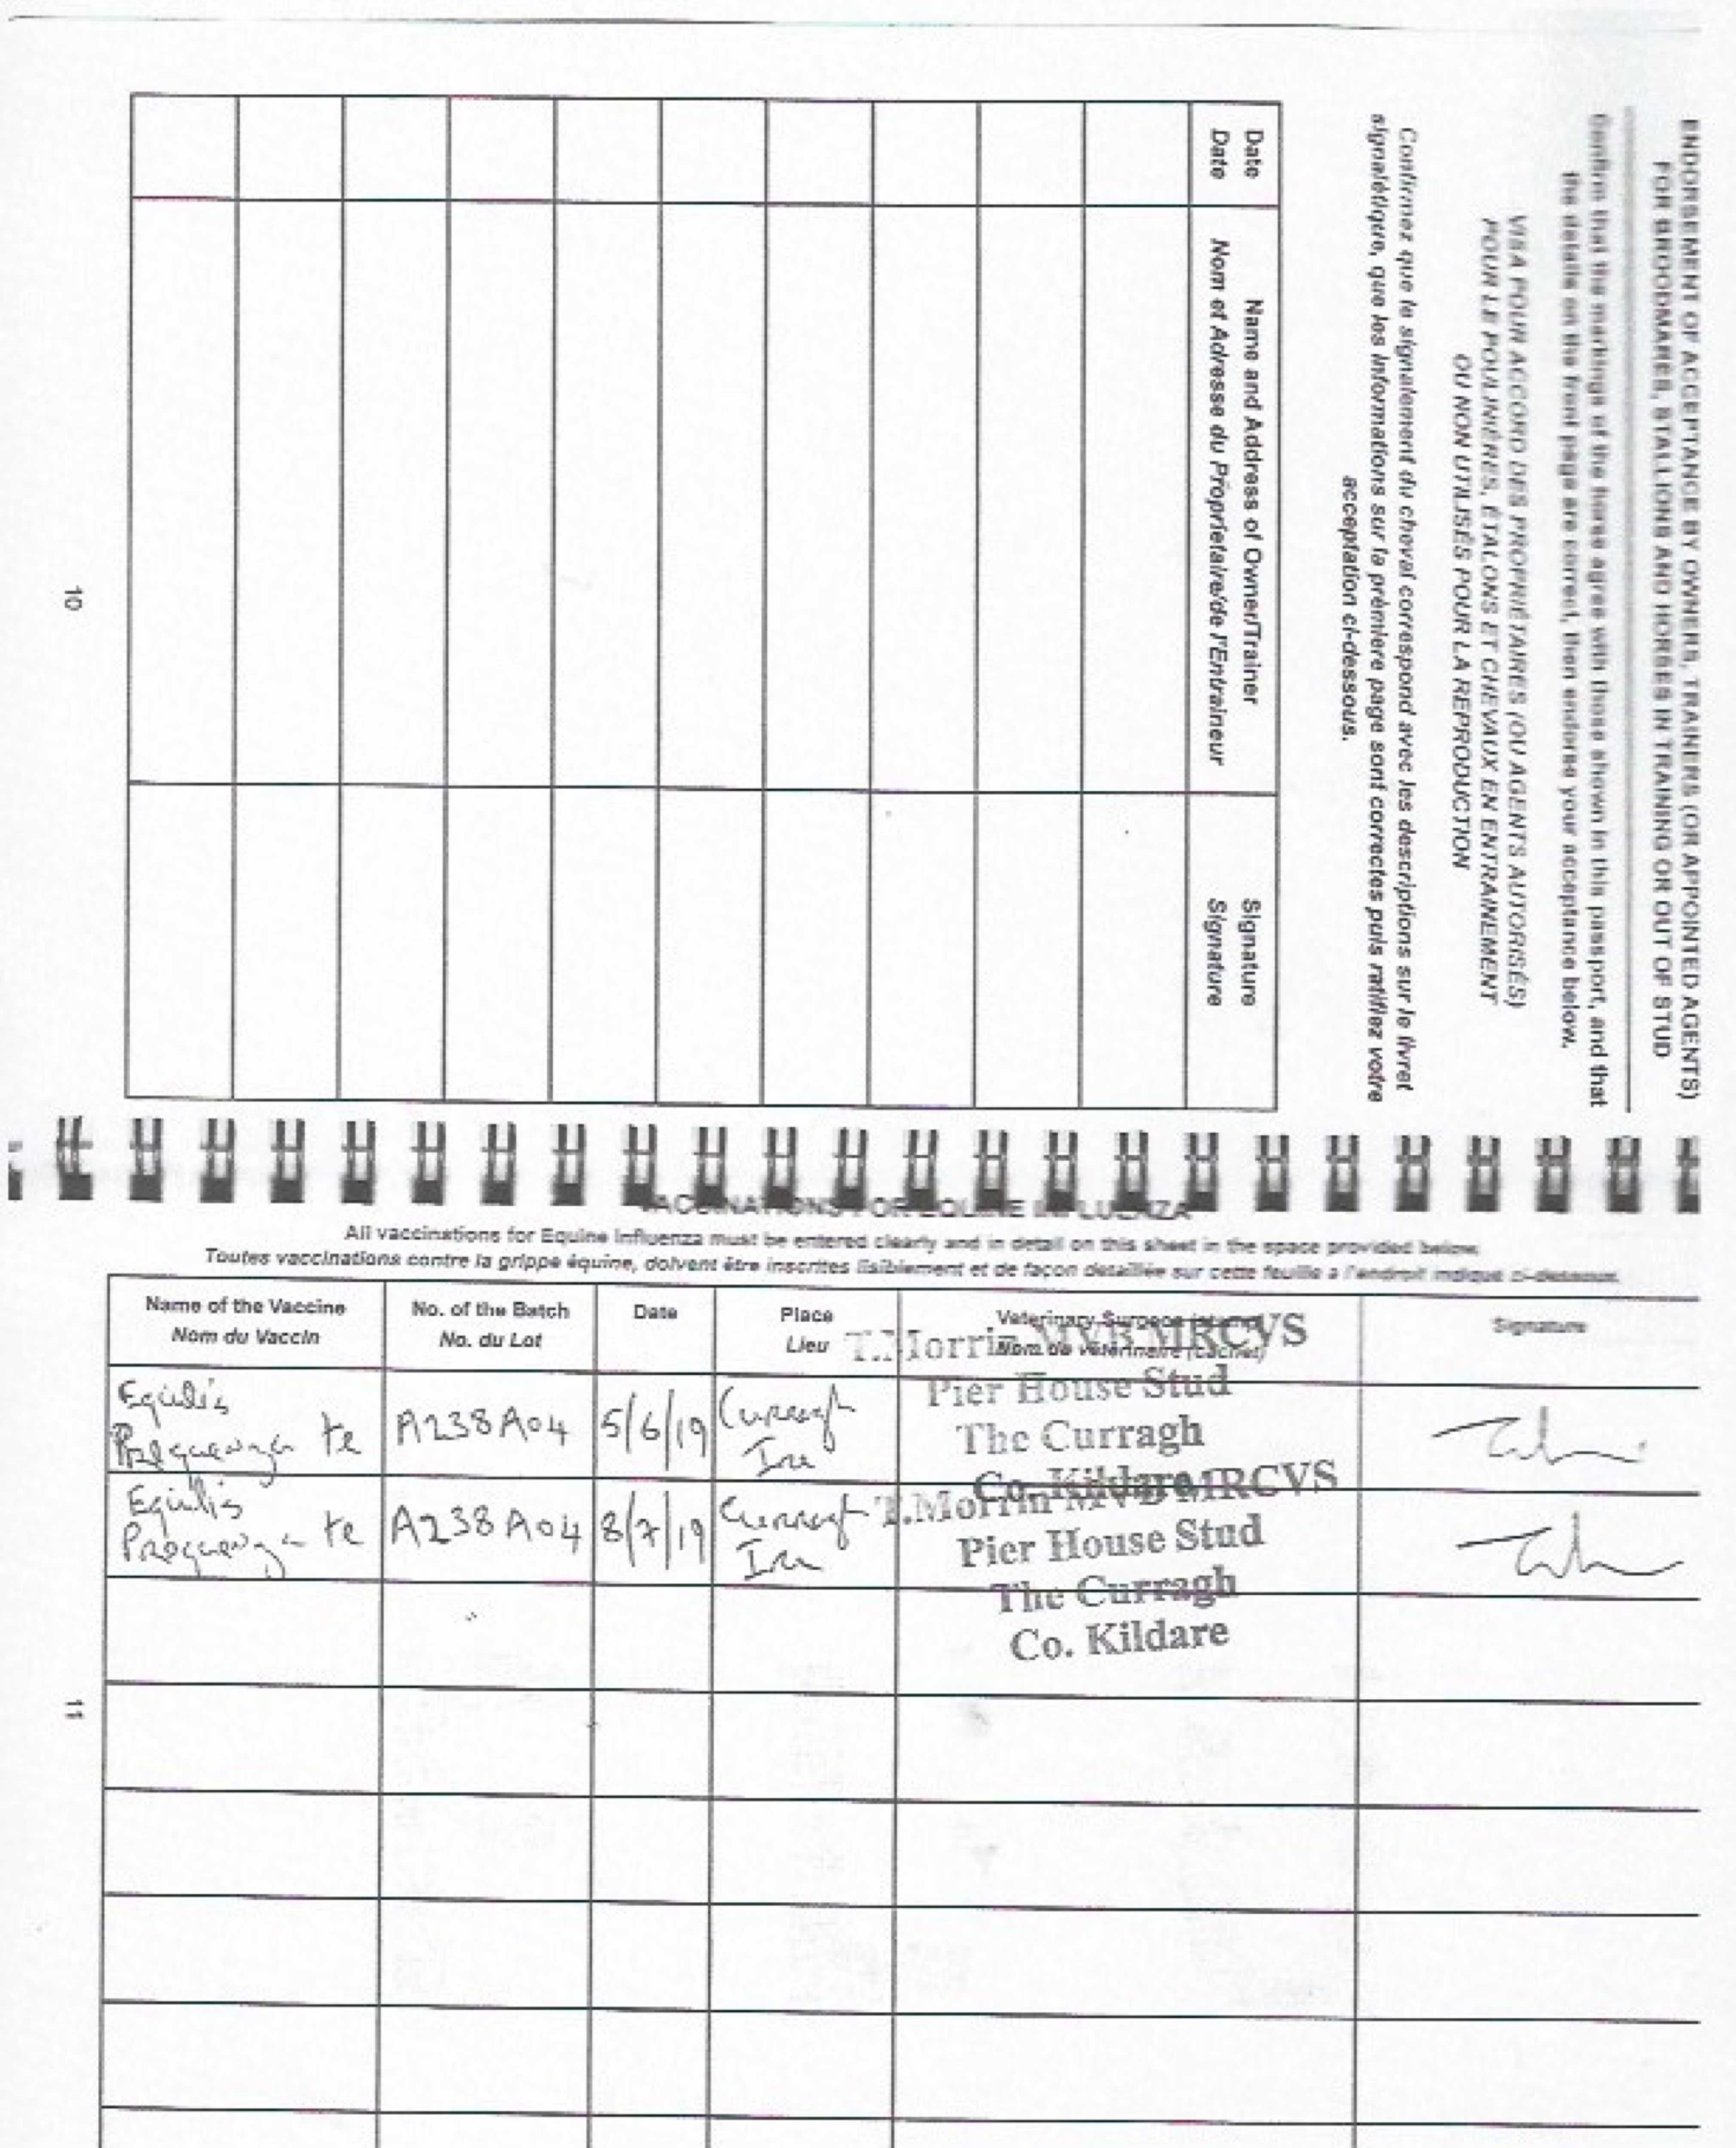 ENDORSEMENT OF ACCEPTANCE BY OWNERS, TRAINERS (OR APPOINTED AGENTS)
FOR BROODMARES, STALLIONS AND HORSES IN TRAINING OR OUT OF STUD
Confirm that the markings of the horse agree with those shown in this passport, and that
the details on the front page are correct, then endorse your acceptance below.
VISA POUR ACCORD DES PROPRIÉTAIRES (OU AGENTS AUTORISÉS)
POUR LE POULINIÈRES, ÉTALONS ET CHEVAUX EN ENTRAINEMENT
OU NON UTILISÉS POUR LA REPRODUCTION
Confirmez que le signalement du cheval correspond avec les descriptions sur le livret
signalétique, que les informations sur la première page sont correctes puis ratifiez votre
acceptation ci-dessous.
Date Name and Address of Owner/Trainer Signature
Date Nom et Adresse du Propriétaire/de l'Entraineur Signature
10
VACCINATIONS FOR EQUINE INFLUENZA
All vaccinations for Equine Influenza must be entered clearly and in detail on this sheet in the space provided below.
Toutes vaccinations contre la grippe équine, doivent être inscrites lisiblement et de façon detaillée sur cette feuille a l'endroit indique ci-dessous.
Name of the Vaccine No. of the Batch Date Place Veterinary Surgeon (stamp) Signature
Nom du Vaccin No. du Lot Lieu Nom de vétérinaire (cachet)
T.Morrin MVB MRCVS
Pier House Stud
The Curragh
Co. Kildare
Equilis
Prequenza te A238A04 5/6/19 Curragh
Ire
T.Morrin MVB MRCVS
Pier House Stud
The Curragh
Co. Kildare
Equilis
Prequenza te A238A04 8/7/19 Curragh
Ire
11